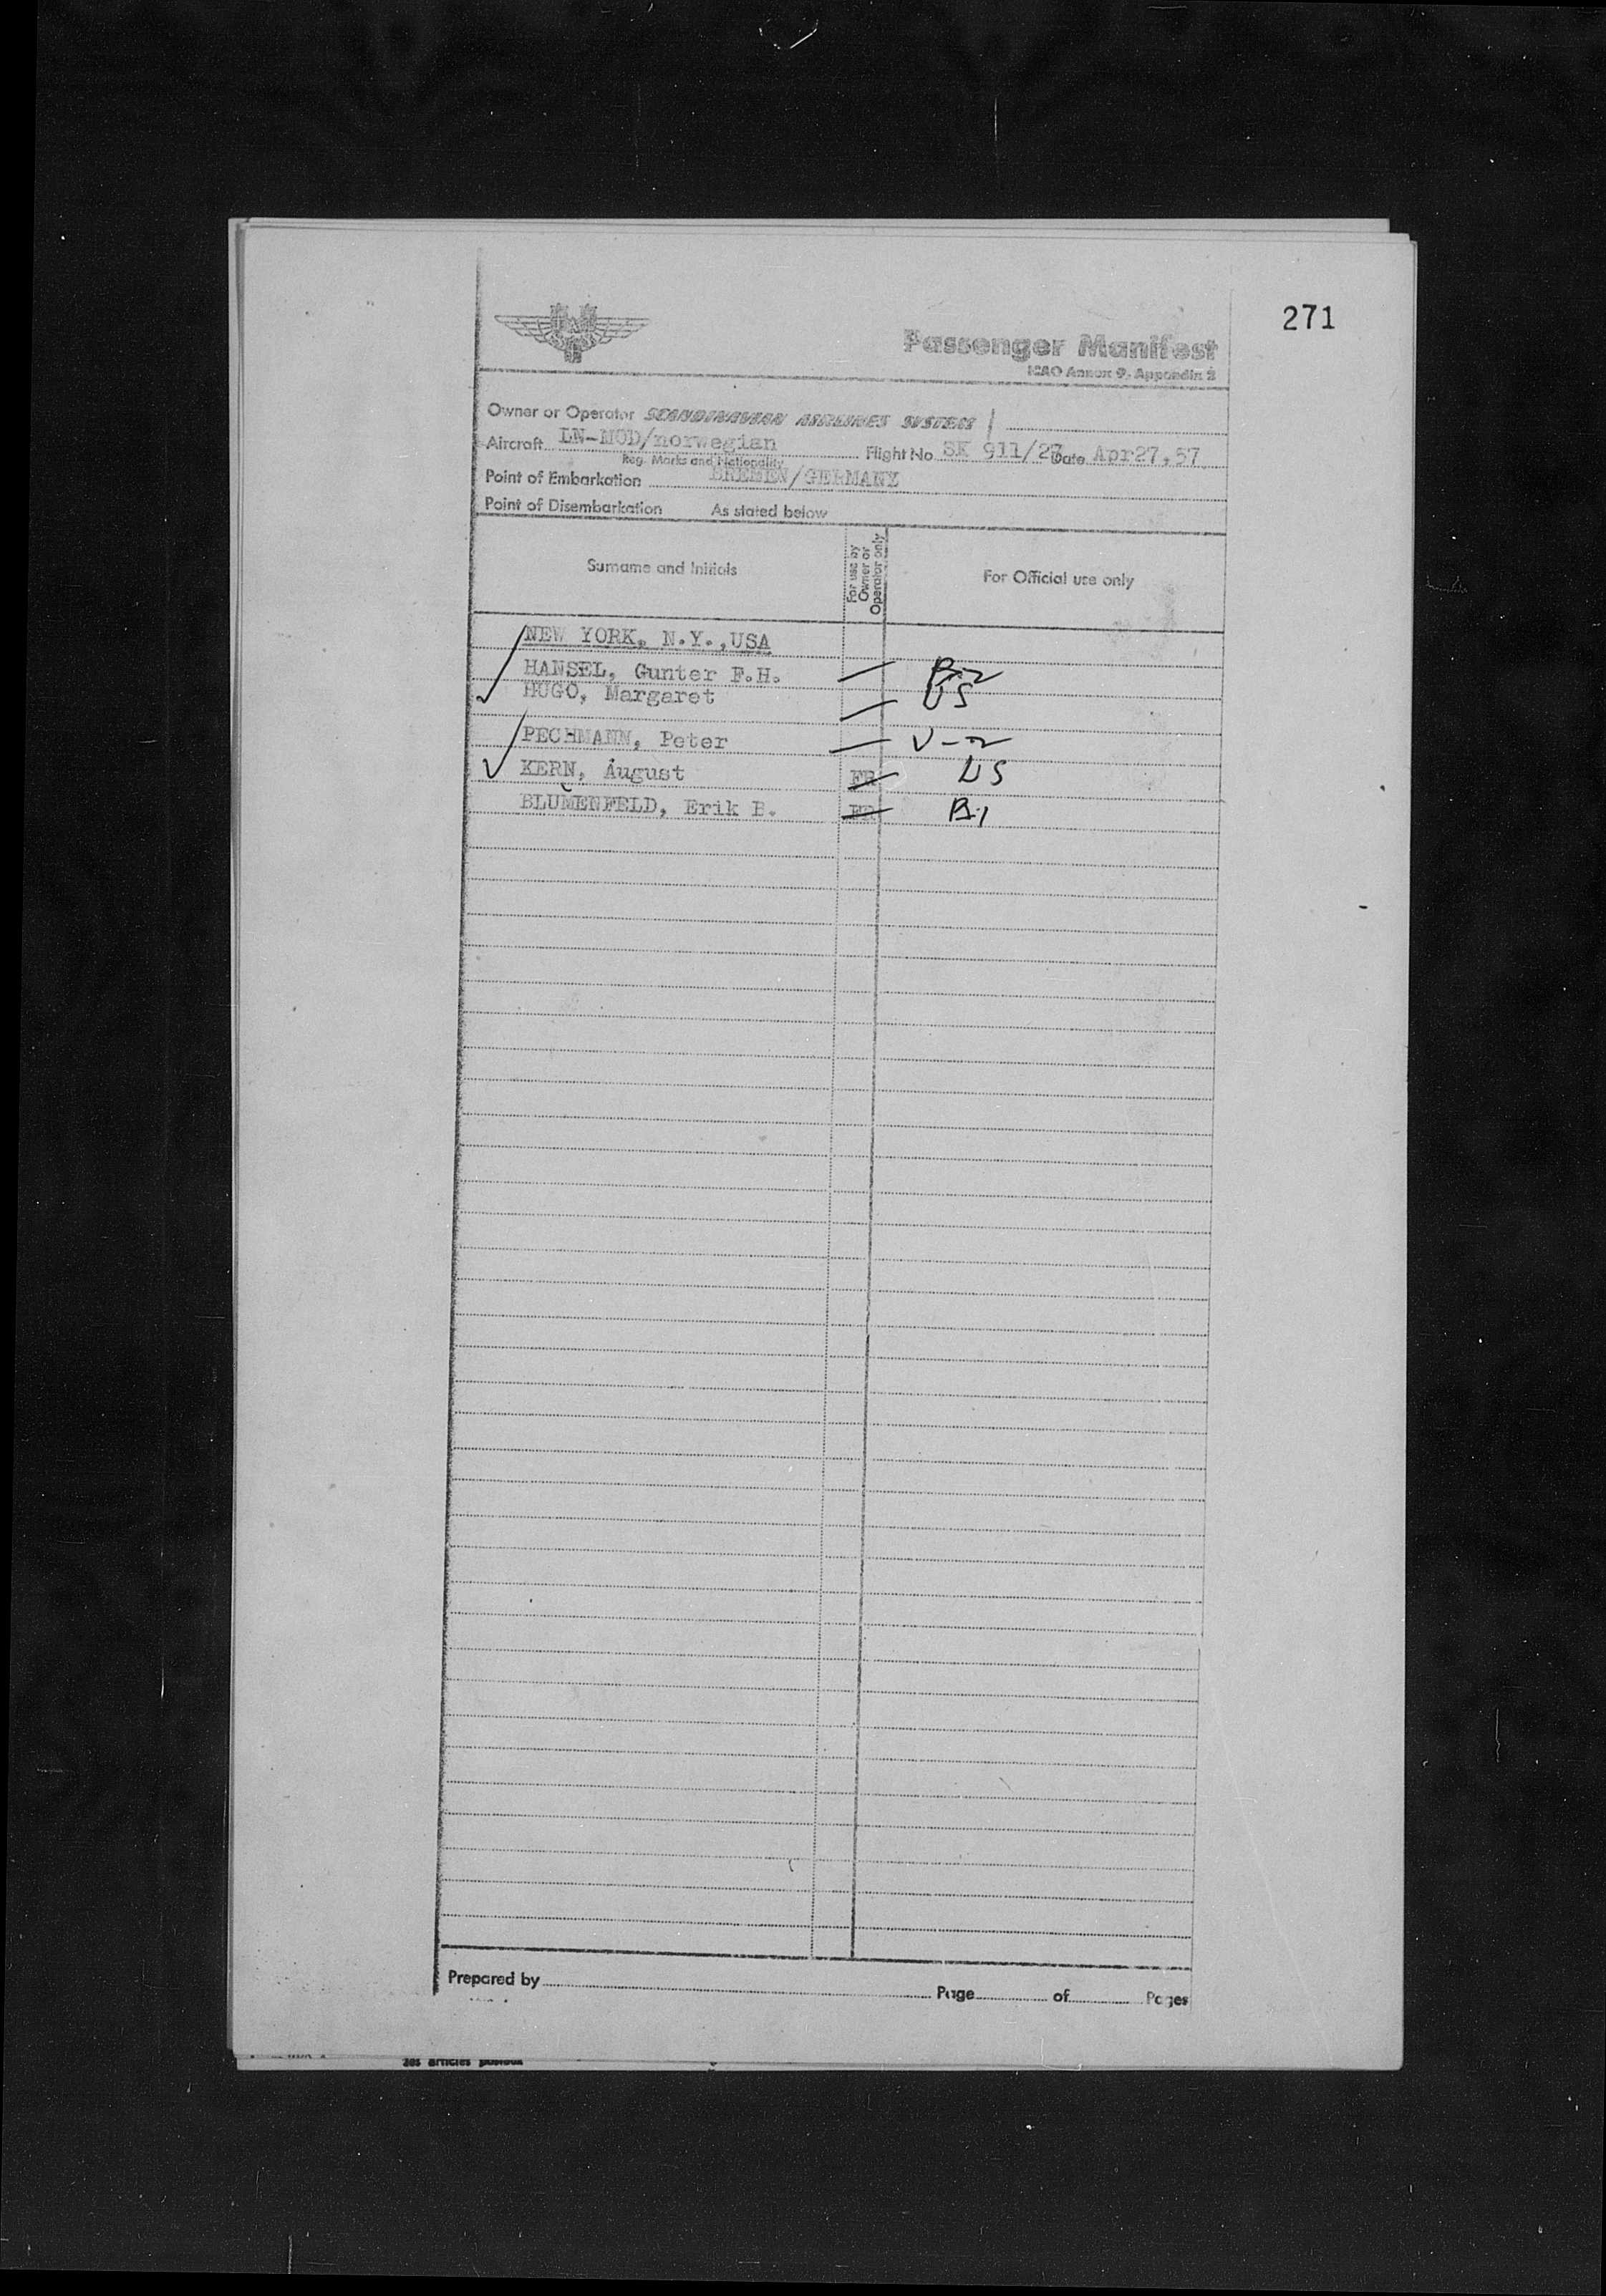 271
Passenger Manifest
ICAO Annex 9, Appendix 2
Owner or Operator SCANDINAVIAN AIRLINES SYSTEM
Aircraft LN-MOD/norwegian Flight No SK 911/27 Date Apr27,57
Reg. Marks and Nationality
Point of Embarkation BREMEN/GERMANY
Point of Disembarkation As stated below
Surname and Initials For use by Owner or Operator only For Official use only
NEW YORK, N.Y.,USA
HANSEL, Gunter F.H. B-2
HUGO, Margaret US
PECHMANN, Peter V-2
KERN, August FR US
BLUMENFELD, Erik B. FR B-1
Prepared by Page of Pages
des articles postaux